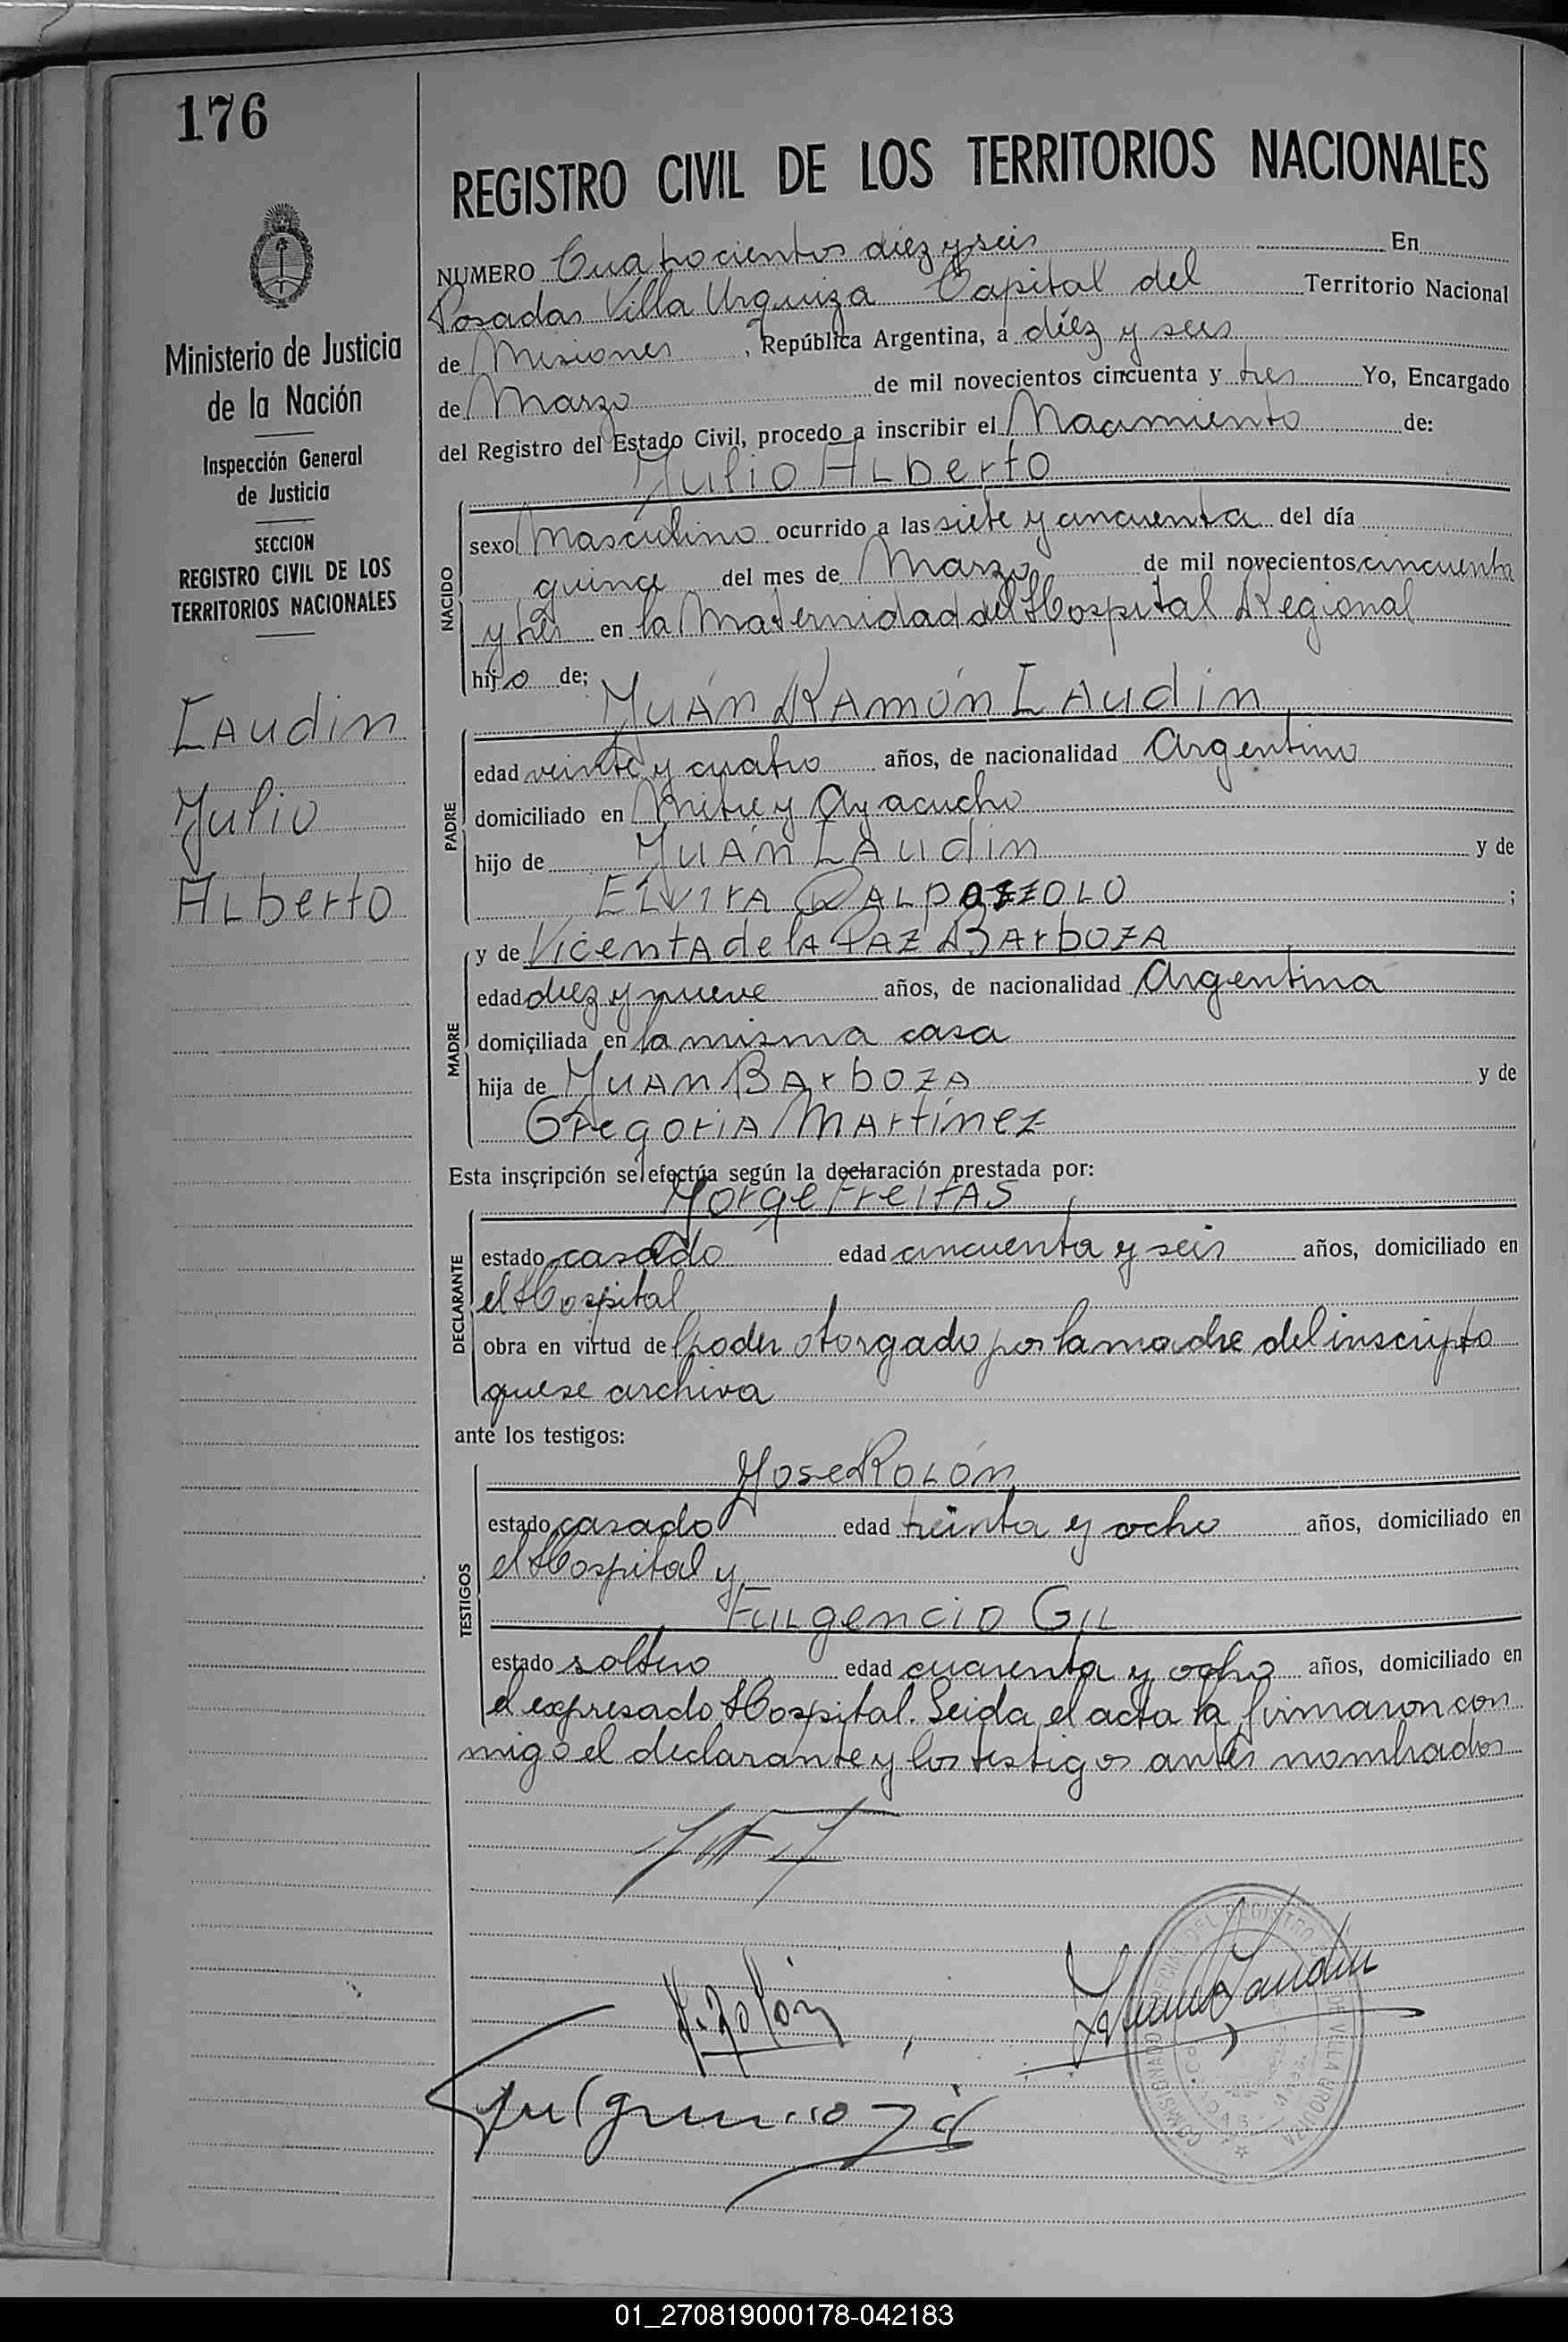 176
REGISTRO CIVIL DE LOS TERRITORIOS NACIONALES
Ministerio de Justicia
de la Nación
Inspección General
de Justicia
SECCION
REGISTRO CIVIL DE LOS
TERRITORIOS NACIONALES
Laudin
Julio
Alberto
NUMERO Cuatrocientos diez y seis En
Posadas Villa Urquiza Capital del Territorio Nacional
de Misiones, República Argentina, a diéz y seis
de Marzo de mil novecientos cincuenta y tres Yo, Encargado
del Registro del Estado Civil, procedo a inscribir el Nacimiento de:
Julio Alberto
NACIDO
sexo Masculino ocurrido a las siete y cincuenta del día
quince del mes de Marzo de mil novecientos cincuenta
y tres en la Maternidad del Hospital Regional
hijo de:
Juán Ramón Laudin
PADRE
edad veinte y cuatro años, de nacionalidad Argentino
domiciliado en Mitre y Ayacucho
hijo de Juán Laudin y de
Elvira Dalpozzolo;
MADRE
y de Vicenta de la Paz Barboza
edad diez y nueve años, de nacionalidad Argentina
domiciliada en la misma casa
hija de Juan Barboza y de
Gregoria Martínez
Esta inscripción se efectúa según la declaración prestada por:
Jorge Freitas
DECLARANTE
estado casado edad cincuenta y seis años, domiciliado en
el Hospital
obra en virtud del poder otorgado por la madre del inscripto
que se archiva
ante los testigos:
José Rolón
TESTIGOS
estado casado edad treinta y ocho años, domiciliado en
el Hospital y
Fulgencio Gil
estado soltero edad cuarenta y ocho años, domiciliado en
el expresado Hospital. Leida el acta la firmaron con
migo el declarante y los testigos antes nombrados
J. Rolón
Laudin
Fulgencio Gil
DEL REGISTRO
DE VILLA URQUIZA
01_270819000178-042183